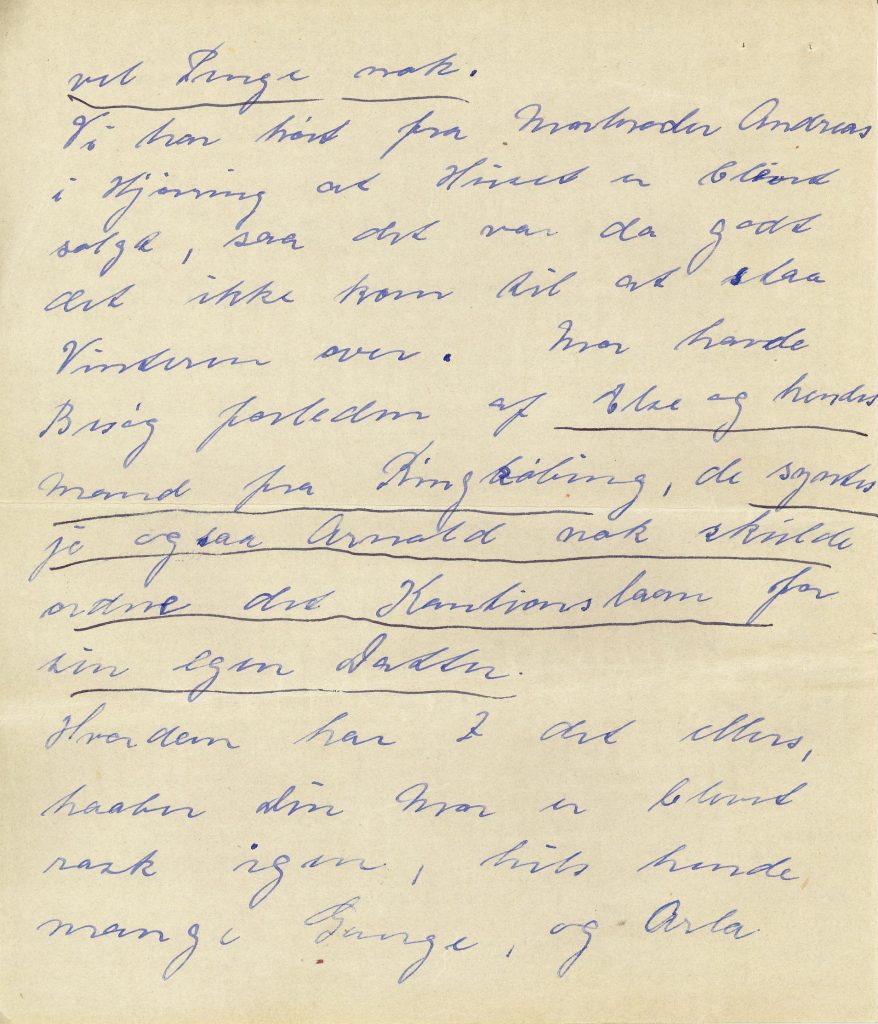 vel Penge nok.
Vi har hørt fra Morbroder Andreas
i Hjørring at Huset er blevet
solgt, saa det var da godt
det ikke kom til at staa
Vinteren over. Mor havde
Besøg forleden af Else og hendes
Mand fra Ringkøbing, de syntes
jo ogsaa Arnold nok skulde
ordne det Kautionslaan for
sin egen Datter.
Hvordan har I det ellers,
haaber Din Mor er blevet
rask igen, hils hende
mange Gange, og Arla